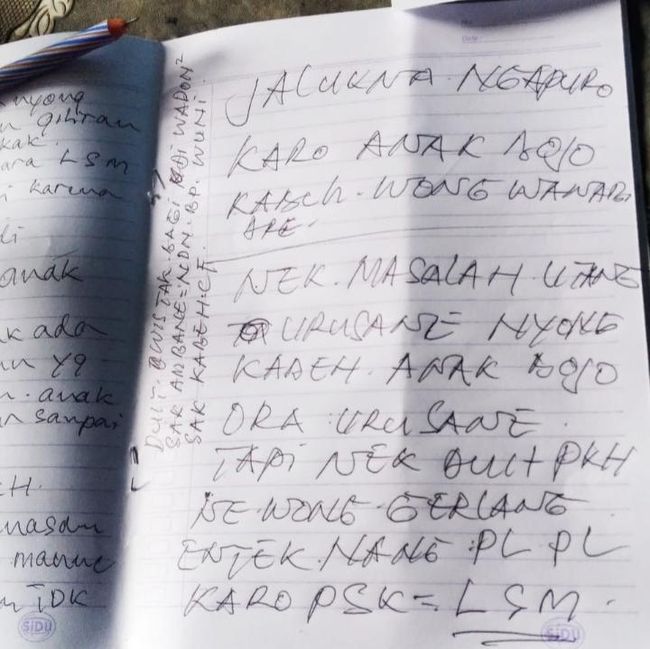 nyong
giliran
kak.
ara LSM
i karena
di
anak
k ada
yg
n. anak
n sampai
H.
masdu
manut
m TDK
SiDU
DUIT. WIS TAK BAGI WADON²
SAK AMBANE = NDN. BP. WUNI.
SAK KABEH. CF.
JALUKNA. NGAPURO
KARO ANAK BOJO
KABEH. WONG WANARE
APE.
NEK. MASALAH. UTANG
URUSANE NYONG
KABEH. ANAK BOJO
ORA URUSANE.
TAPI NEK DUIT PKH
NE. WONG. GERLANG
ENTEK. NANG PL PL
KARO PSK = LSM.
SiDU